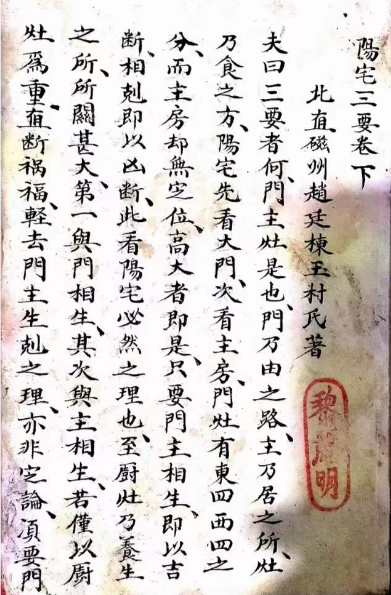 陽宅三要卷下
北直磁州趙廷棟玉村氏著
夫曰三要者何、門主灶是也、門乃由之路、主乃居之所、灶
乃食之方、陽宅先看大門、次看主房、門灶有東四西四之
分、而主房却無定位、高大者即是、只要門主相生、即以吉
断、相剋即以凶断、此看陽宅必然之理也、至厨灶乃養生
之所、所關甚大、第一與門相生、其次與主相生、若僅以厨
灶爲重、直断禍福、輕去門主生剋之理、亦非定論、湏要門
黎明